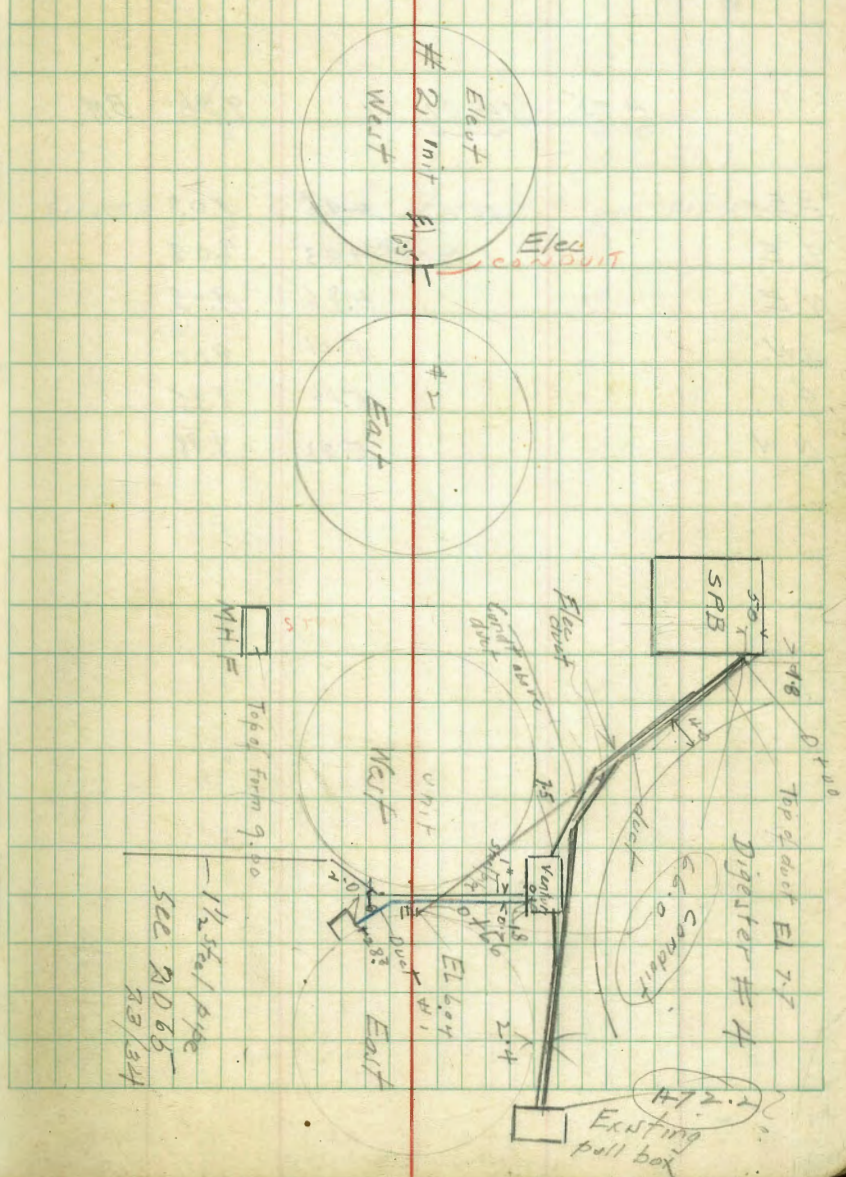 Elect
# 2, Unit
West
El
6.5
Elec
CONDUIT
# 2
East
SPB
50
> 4.8
0+00
Elec
duct
Cond't above
duct
duct
Top of duct EL 7.7
Digester # 4
66.0 Conduit
MH F
Top of form 9.00
West
Unit
7.5
Vault
1.8
EL 6.04
# 1
Duct
East
2.4
1 1/2 steel pipe
See 2065
23/34
472.2
Existing
pull box